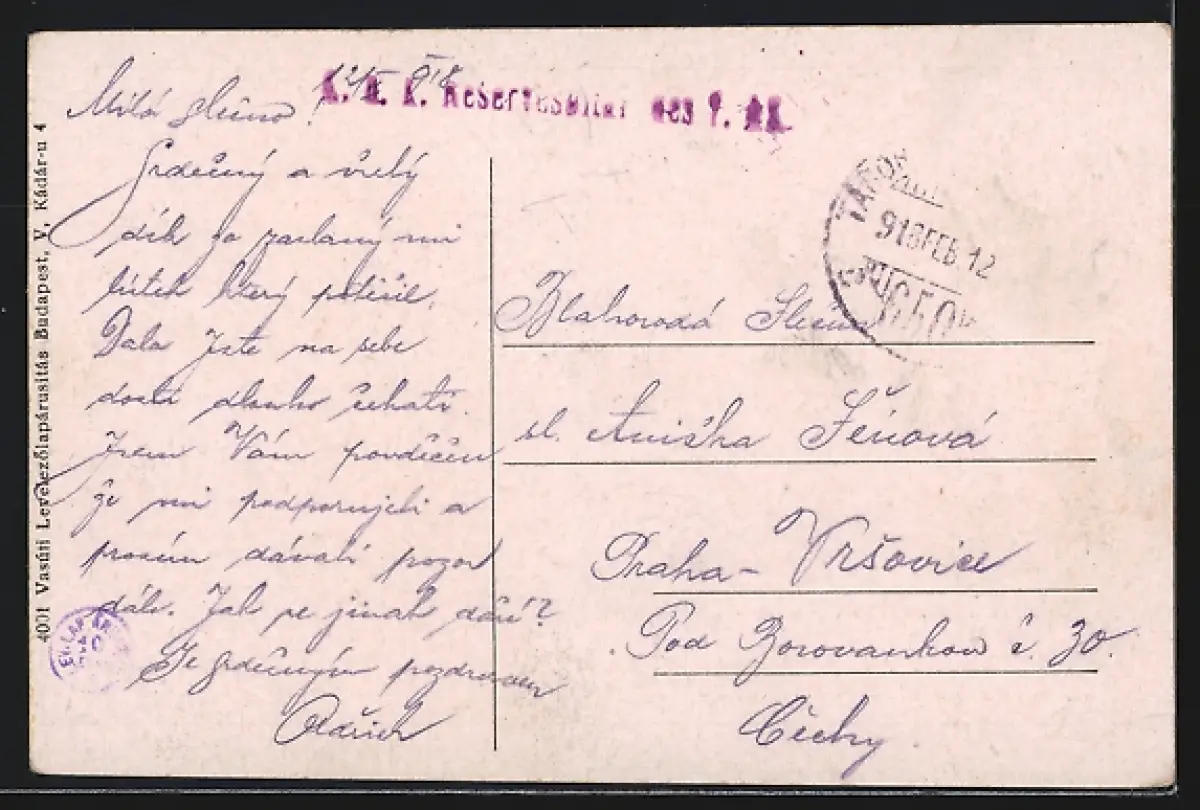 12/II 918
Milá slečno!
Srdečný a vřelý
dík za zaslaný mi
lístek který potěšil.
Dala jste na sebe
dosti dlouho čekati.
Jsem Vám povděčen
že mi podporujete a
prosím dávati pozor
dále. Jak se jinak daří?
Se srdečným pozdravem
Oldřich
K. u. k. Reservespital des
918 FEB. 12
Blahorodá Slečna
sl. Aniška Šéňová
Praha - Vršovice
Pod Borovankou č. 30.
Čechy
4001 Vasúti Levelezőlapárusitás Budapest, V, Kádár-u 4